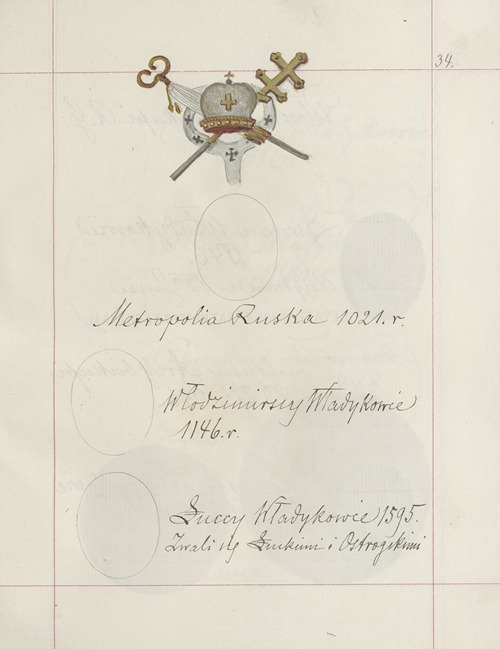 34.
Metropolia Ruska 1021. r.
Włodzimirscy Władykowie
1146. r.
Łuccy Władykowie 1595.
Zwali się Łuckimi i Ostrogskimi